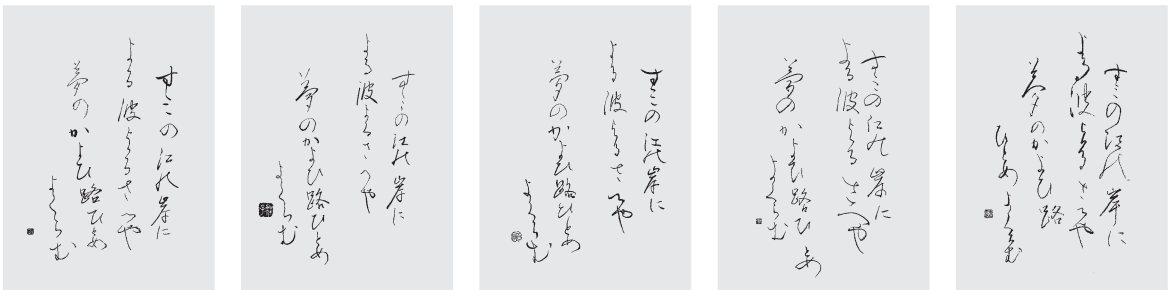 すみの江の岸に
よる波よるさへや
夢のかよひ路ひとめ
よくらむ
すみの江の岸に
よる波よるさへや
夢のかよひ路ひとめ
よくらむ
すみの江の岸に
よる波よるさへや
夢のかよひ路ひとめ
よくらむ
すみの江の岸に
よる波よるさへや
夢のかよひ路ひとめ
よくらむ
すみの江の岸に
よる波よるさへや
夢のかよひ路
ひとめよくらむ